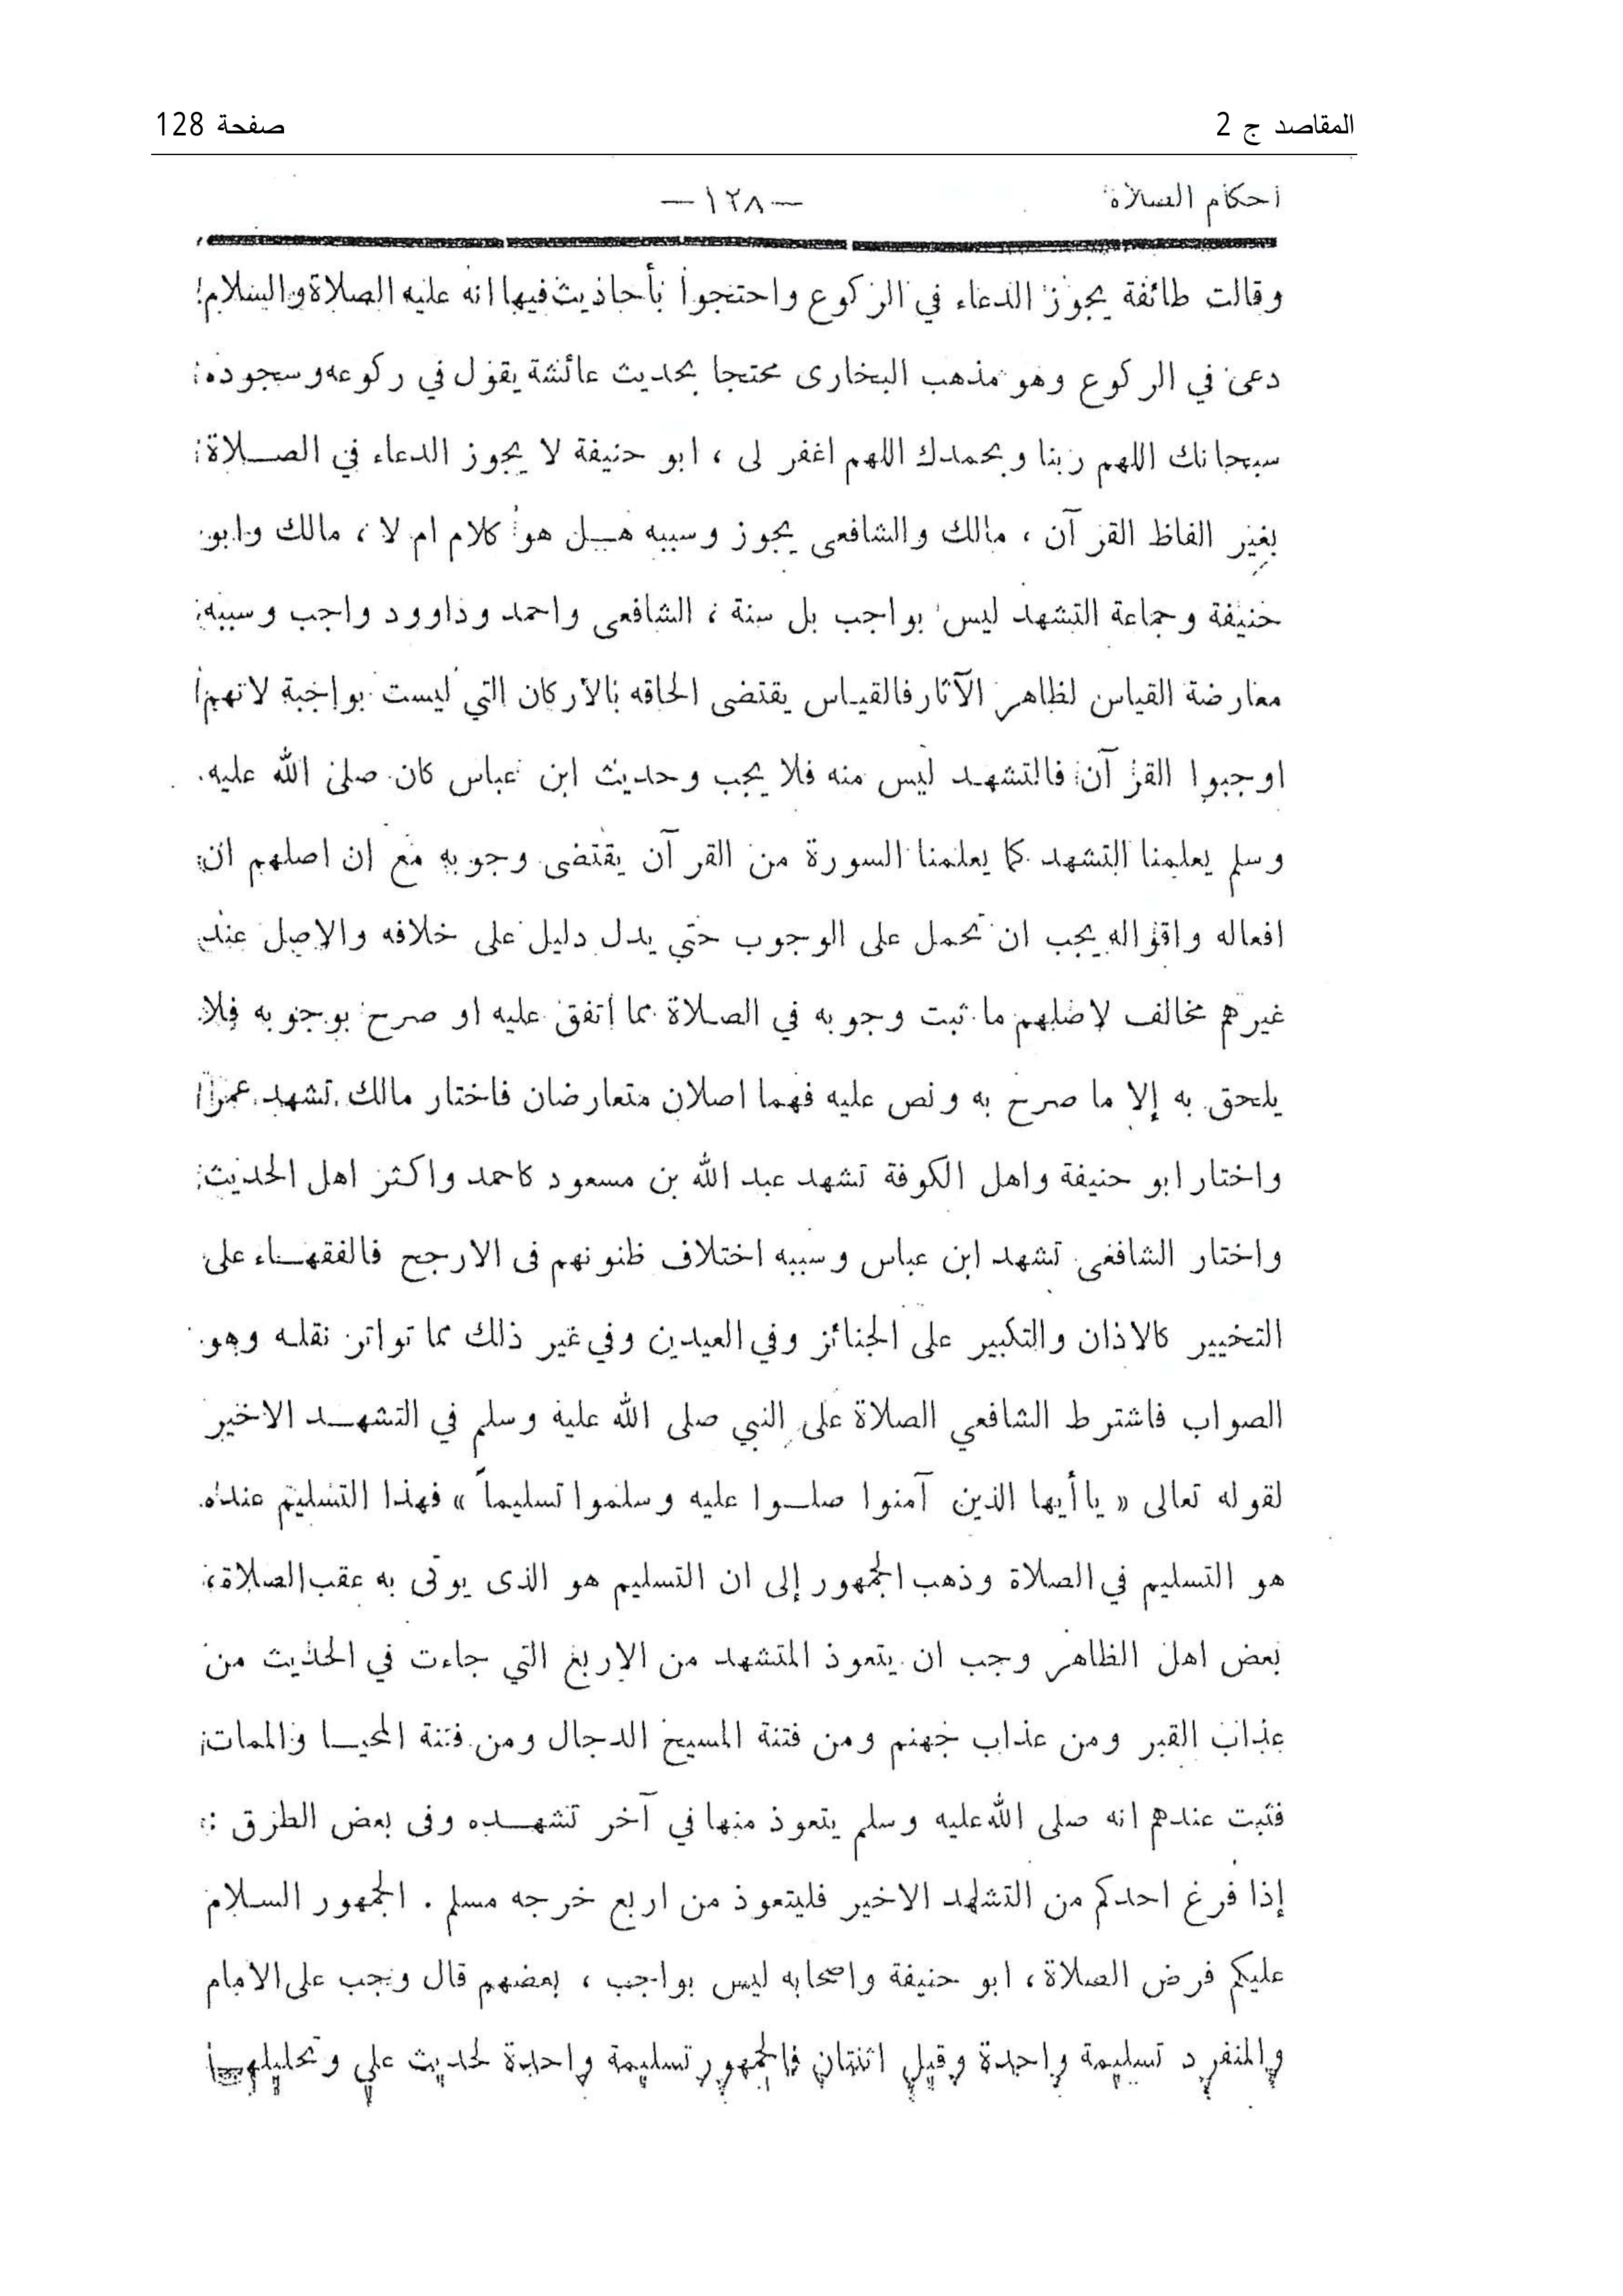 المقاصد ج 2
صفحة 128
احكام الصلاة
—١٢٨—
وقالت طائفة يجوز الدعاء في الركوع واحتجوا بأحاديث فيها انه عليه الصلاة والسلام
دعى في الركوع وهو مذهب البخارى محتجا بحديث عائشة يقول في ركوعه وسجوده
سبحانك اللهم ربنا وبحمدك اللهم اغفر لى ، ابو حنيفة لا يجوز الدعاء في الصلاة
بغير الفاظ القرآن ، مالك والشافعى يجوز وسببه هل هو كلام ام لا ، مالك وابو
حنيفة وجماعة التشهد ليس بواجب بل سنة ، الشافعى واحمد وداوود واجب وسببه
معارضة القياس لظاهر الآثار فالقياس يقتضى الحاقه بالأركان التي ليست بواجبة لانهم
اوجبوا القرآن فالتشهد ليس منه فلا يجب وحديث ابن عباس كان صلى الله عليه
وسلم يعلمنا التشهد كما يعلمنا السورة من القرآن يقتضى وجوبه مع ان اصلهم ان
افعاله واقواله يجب ان تحمل على الوجوب حتي يدل دليل على خلافه والاصل عند
غيرهم مخالف لاصلهم ما ثبت وجوبه في الصلاة مما اتفق عليه او صرح بوجوبه فلا
يلحق به إلا ما صرح به ونص عليه فهما اصلان متعارضان فاختار مالك تشهد عمر
واختار ابو حنيفة واهل الكوفة تشهد عبد الله بن مسعود كاحمد واكثر اهل الحديث
واختار الشافعى تشهد ابن عباس وسببه اختلاف ظنونهم فى الارجح فالفقهاء على
التخيير كالاذان والتكبير على الجنائز وفي العيدين وفي غير ذلك مما تواتر نقله وهو
الصواب فاشترط الشافعي الصلاة على النبي صلى الله عليه وسلم في التشهد الاخير
لقوله تعالى « ياأيها الذين آمنوا صلوا عليه وسلموا تسليماً » فهذا التسليم عنده
هو التسليم في الصلاة وذهب الجمهور إلى ان التسليم هو الذى يوتى به عقب الصلاة ،
بعض اهل الظاهر وجب ان يتعوذ المتشهد من الاربع التي جاءت في الحديث من
عذاب القبر ومن عذاب جهنم ومن فتنة المسيح الدجال ومن فتنة المحيا والممات
فثبت عندهم انه صلى الله عليه وسلم يتعوذ منها في آخر تشهده وفى بعض الطرق :
إذا فرغ احدكم من التشهد الاخير فليتعوذ من اربع خرجه مسلم . الجمهور السلام
عليكم فرض الصلاة ، ابو حنيفة واصحابه ليس بواجب ، بعضهم قال وجب على الامام
والمنفرد تسليمة واحدة وقيل اثنتان فالجمهور تسليمة واحدة لحديث علي وتحليلها